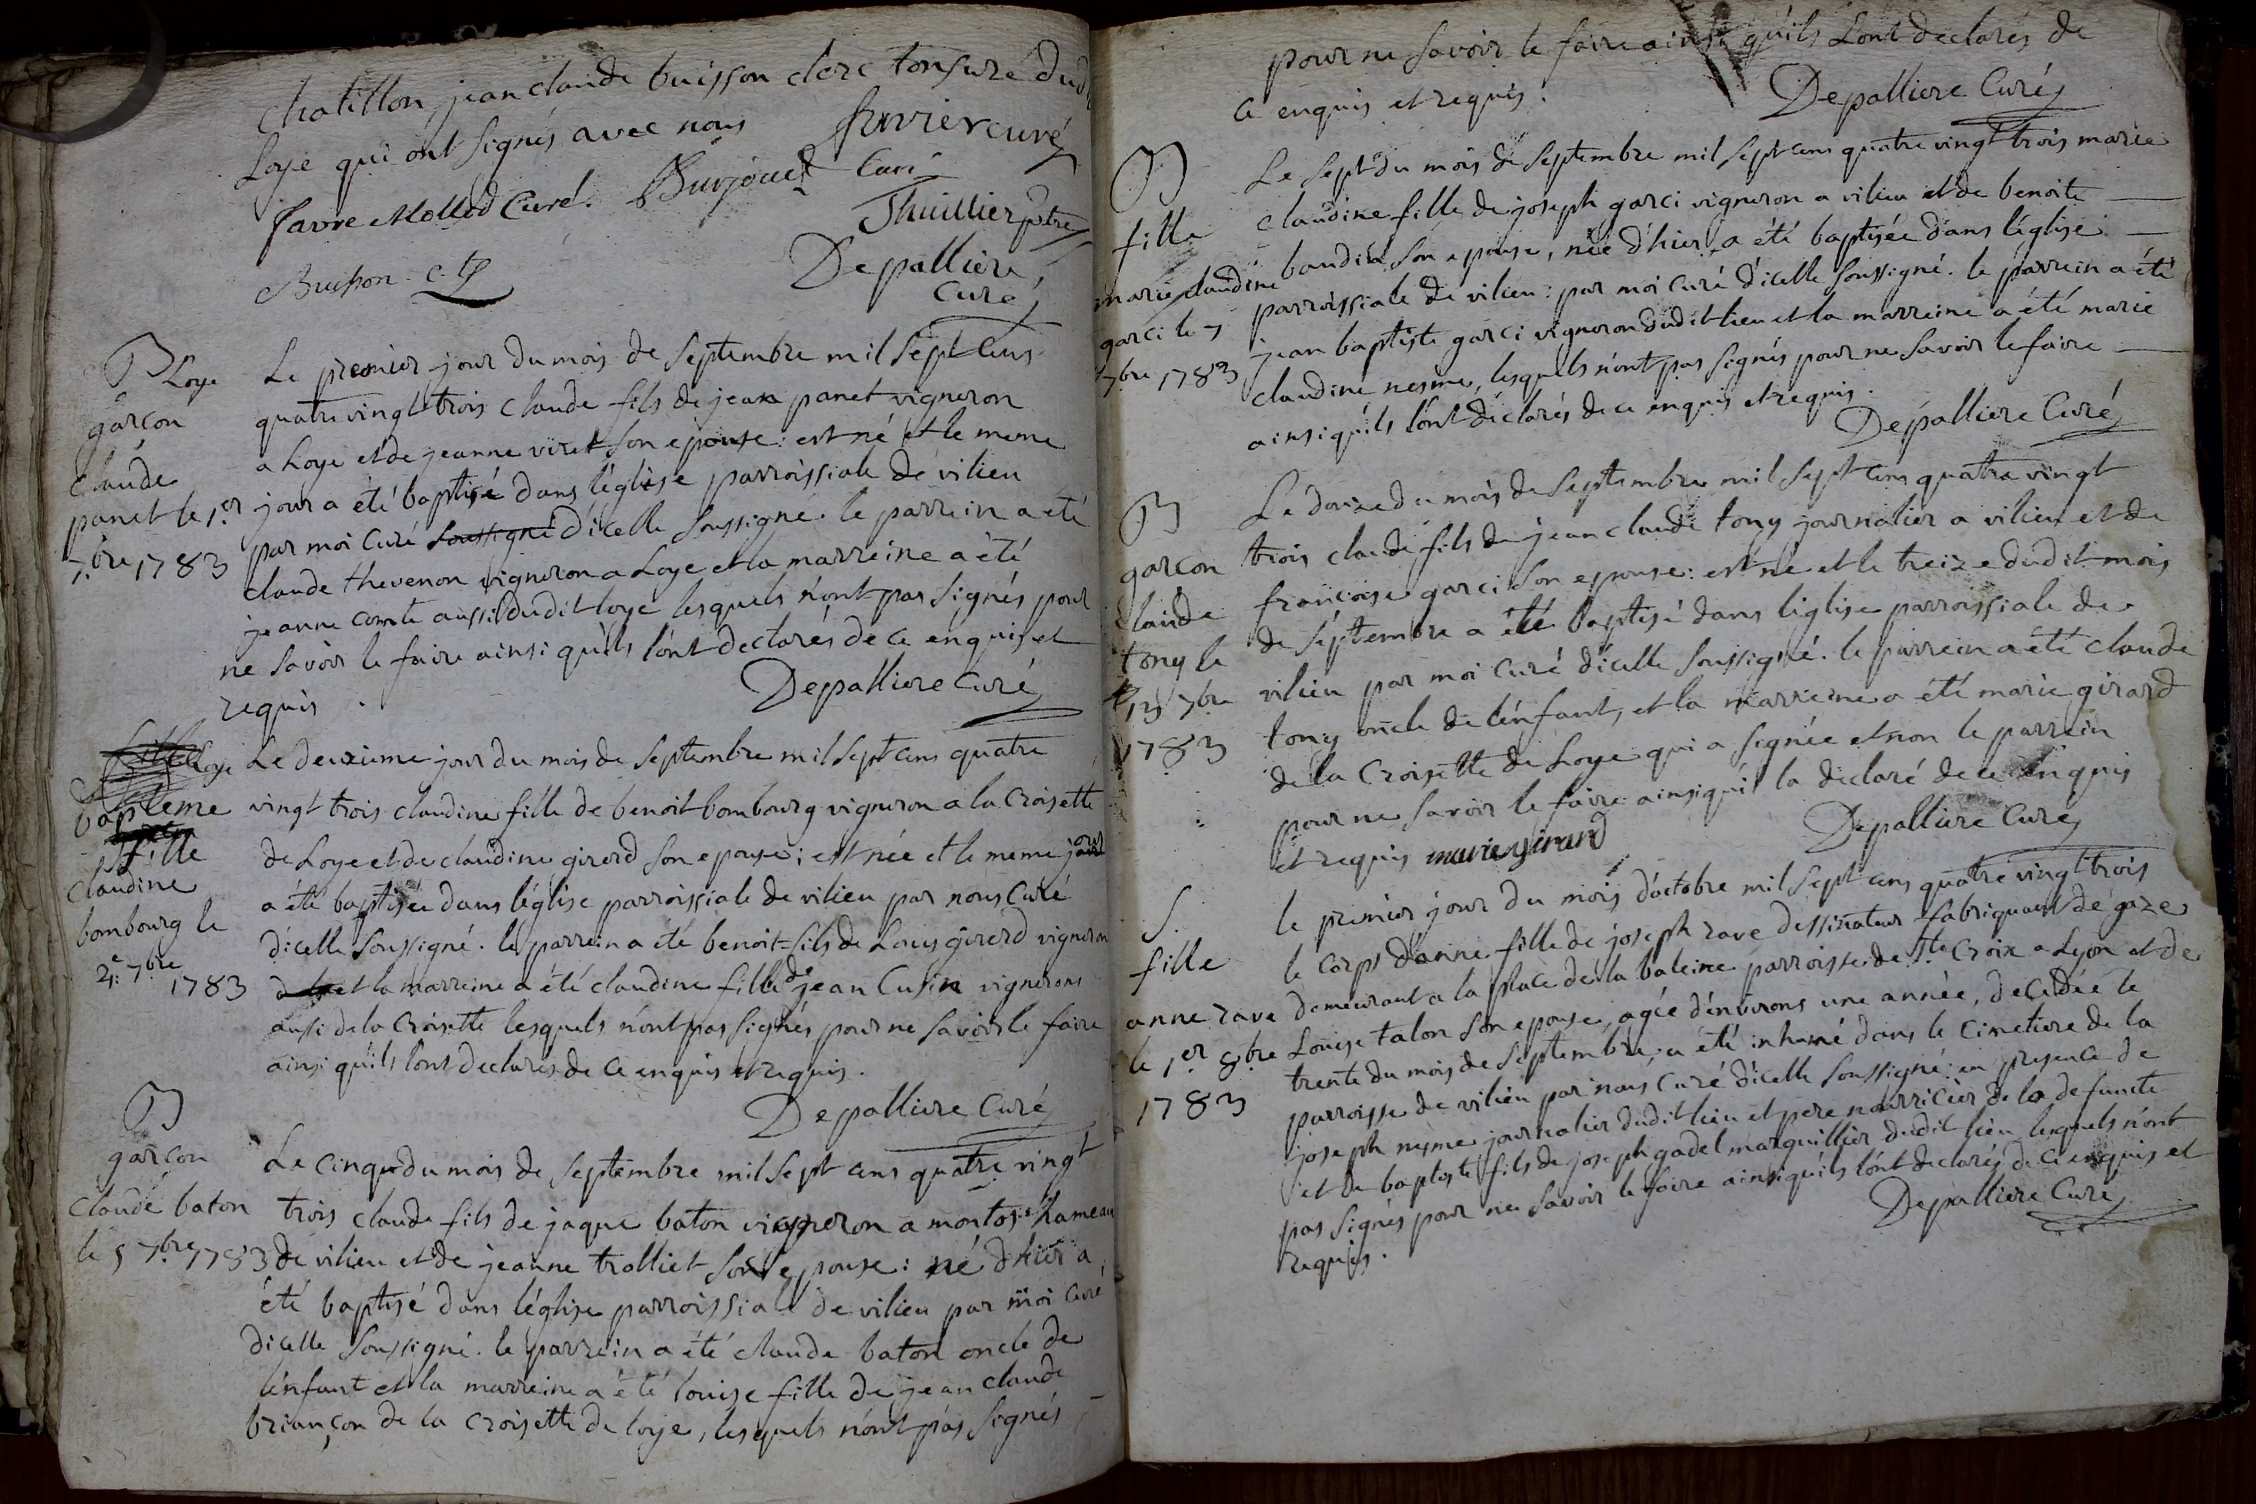 chatillon, jean claude buisson clerc tonsuré dud
Loye qui ont signés avec nous
favrier curé
favre Mollod Curé. Burjoued Curé
Thuillier ptre
Buisson c. t.
Depalliere
Curé
B Loye
garçon
claude
panet le 1.er
7.bre 1783
Le premier jour du mois de septembre mil sept cens
quatre vingt trois claude fils de jean panet vigneron
a Loye et de jeanne viret son epouse: est né et le meme
jour a été baptisé dans l'église parroissiale de vilieu
par moi curé soussigné d'icelle soussigné. le parrein a été
claude thevenon vigneron a Loye et la marreine a été
jeanne comte aussi dudit loye lesquels n'ont pas signés pour
ne savoir le faire ainsi qu'ils l'ont declarés de ce enquis et
requis.
Depalliere Curé
Loye
bapteme
fille
claudine
bombourg le
2.e 7.bre
1783
Le deuxieme jour du mois de septembre mil sept cens quatre
vingt trois claudine fille de benoit bombourg vigneron a la Croisette
de Loye et de claudine girerd son epouse; est née et le meme jour
a été baptisée dans l'église parroissiale de vilieu par nous Curé
d'icelle soussigné. le parrein a été benoit fils de Louis girerd vigneron
et la marreine a été claudine fille de jean Cusin vignerons
aussi de la Croisette lesquels n'ont pas signés pour ne savoir le faire
ainsi qu'ils l'ont declarés de ce enquis et requis.
Depalliere Curé
B
garçon
Claude baton
le 5 7.bre 1783
Le cinq du mois de septembre mil sept cens quatre vingt
trois claude fils de jaque baton vigneron a montos.. hameau
de vilieu et de jeanne trolliet son epouse: né d'hier a
été baptisé dans l'église parroissiale de vilieu par moi curé
d'icelle soussigné. le parrein a été claude baton oncle de
l'enfant et la marreine a été louise fille de jean claude
briançon de la croisette de loye, lesquels n'ont pas signés
pour ne savoir le faire ainsi qu'ils l'ont declarés de
ce enquis et requis.
Depalliere Curé
B
fille
marie claudine
garci le 7
7bre 1783
Le sept du mois de septembre mil sept cens quatre vingt trois marie
claudine fille de joseph garci vigneron a vilieu et de benoite
baudin son epouse, née d'hier, a été baptisée dans l'église
parroissiale de vilieu: par moi curé d'icelle soussigné. le parrein a été
jean baptiste garci vigneron dudit lieu et la marreine a été marie
claudine nesme, lesquels n'ont pas signés pour ne savoir le faire
ainsi qu'ils l'ont déclarés de ce enquis et requis.
Depalliere Curé
B
garçon
claude
tony le
13 7bre
1783
Le douze du mois de septembre mil sept cens quatre vingt
trois claude fils de jean claude tony journalier a vilieu et de
françoise garci son epouse: est né et le treize dudit mois
de septembre a été baptisé dans l'église parroissiale de
vilieu par moi curé d'icelle soussigné. le parrein a été claude
tony oncle de l'enfant, et la marreine a été marie girard
de la Croisette de Loye qui a signée et non le parrein
pour ne savoir le faire ainsi qu'il la declaré de ce enquis
et requis marie girard
Depalliere Curé
S.
fille
anne rave
le 1.er 8.bre
1783
le premier jour du mois d'octobre mil sept cens quatre vingt trois
le corps d'anne fille de joseph rave dessinateur fabriquant de gaze
demeurant a la place de la baleine parroisse de Ste Croix a Lyon et de
Louise talon son epouse, agée d'environs une année, decedée le
trente du mois de septembre, a été inhumé dans le cimetiere de la
parroisse de vilieu par nous curé d'icelle soussigné: en presence de
joseph nesme journalier dudit lieu et pere nourricier de la defuncte
et de baptiste fils de joseph gadel marguillier dudit lieu lesquels n'ont
pas signés pour ne savoir le faire ainsi qu'ils l'ont declarés de ce enquis et
requis.
Depalliere Curé